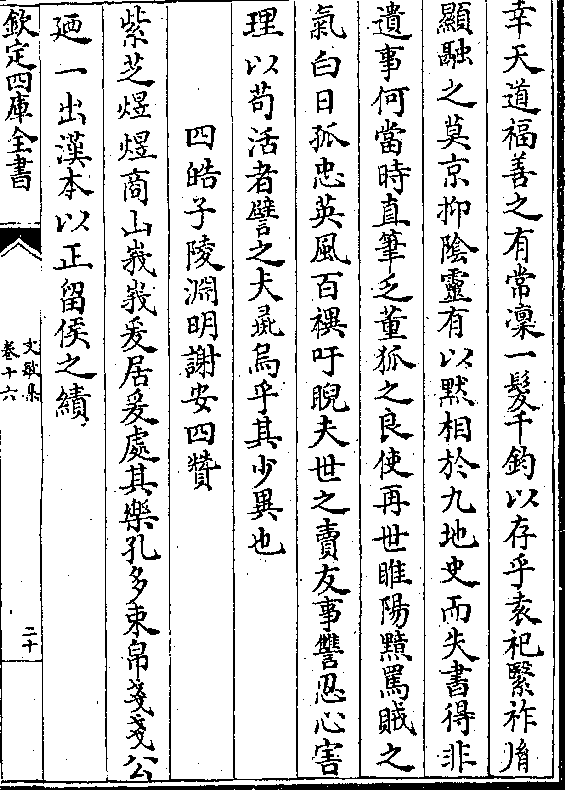 幸天道福善之有常凜一髮千鈞以存乎袁祀緊祚胤
顯融之莫京抑陰靈有以默相於九地史而失書得非
遺事何當時直筆乏董狐之良使再世睢陽黥罵賊之
氣白日孤忠英風百禩吁睨夫世之賣友事讐忍心害
理以苟活者譬之犬彘烏乎其少異也
四皓子陵淵明謝安四贊
紫芝煜煜商山峩峩爰居爰處其樂孔多束帛戔戔公
廼一出漢本以正留侯之績
欽定四庫全書
文敏集
卷十六
二十